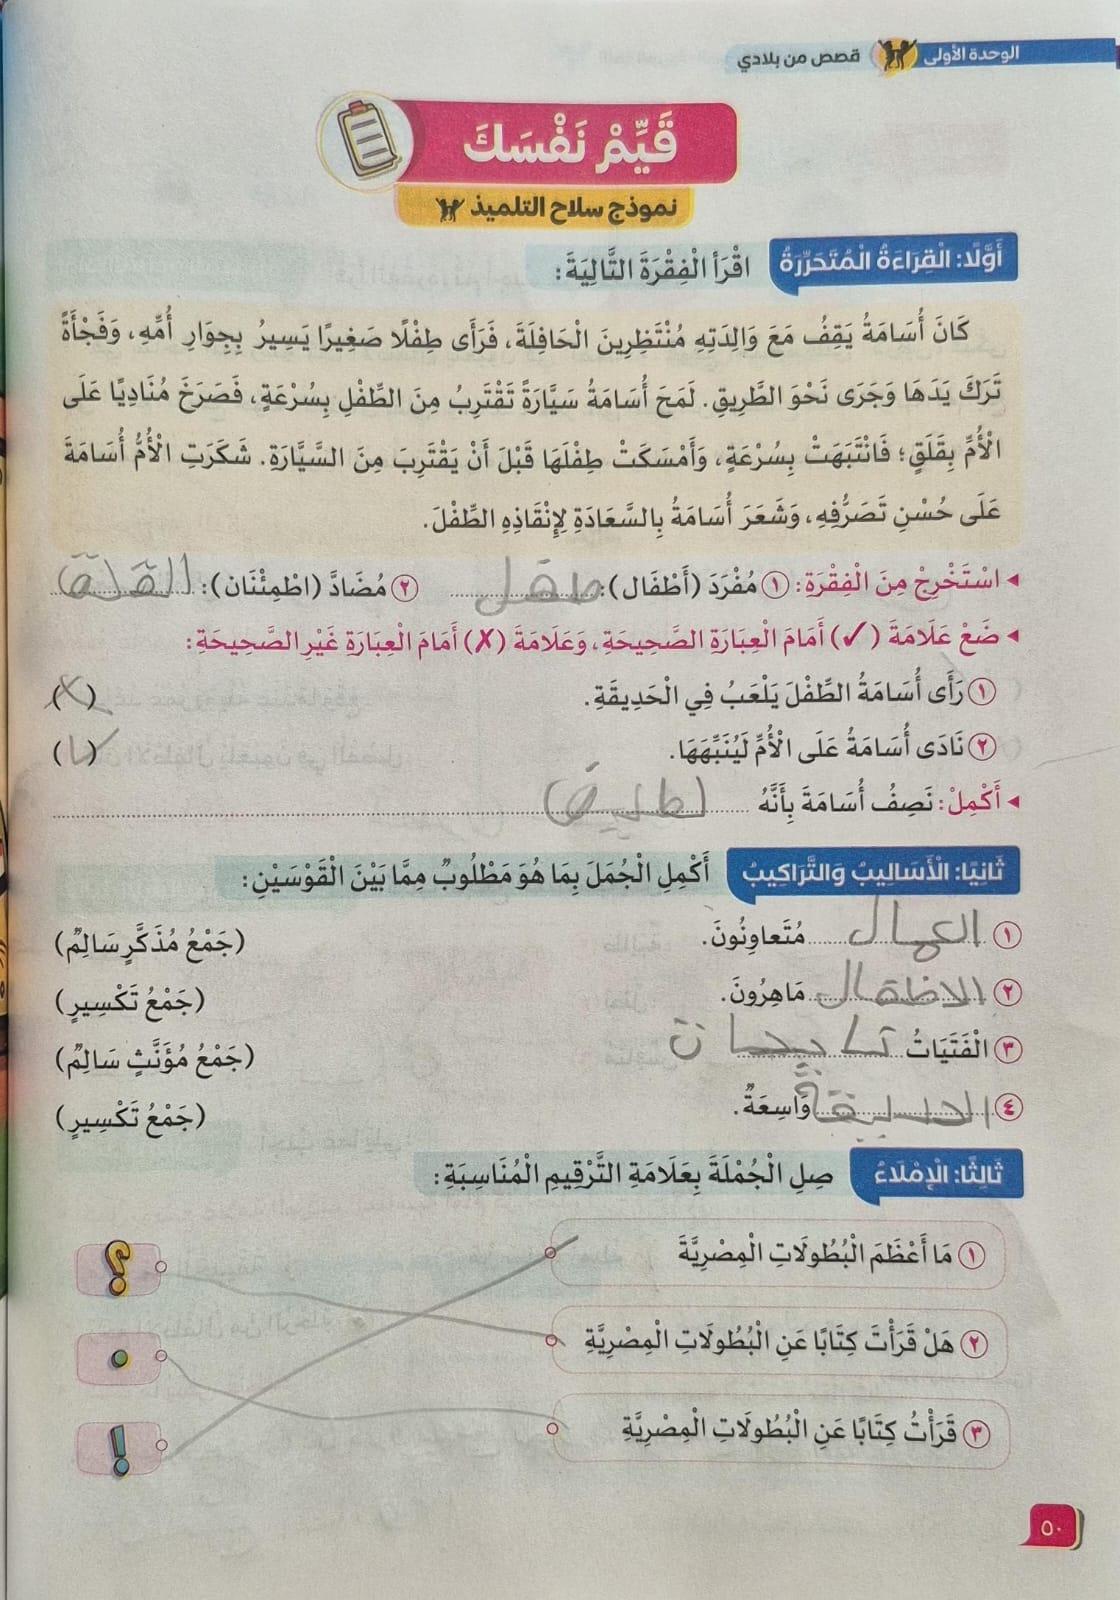 الوحدة الأولى قصص من بلادي
قَيِّمْ نَفْسَكَ
نموذج سلاح التلميذ
أَوَّلًا: الْقِرَاءَةُ الْمُتَحَرِّرَةُ اقْرَأِ الْفِقْرَةَ التَّالِيَةَ:
كَانَ أُسَامَةُ يَقِفُ مَعَ وَالِدَتِهِ مُنْتَظِرِينَ الْحَافِلَةَ، فَرَأَى طِفْلًا صَغِيرًا يَسِيرُ بِجِوَارِ أُمِّهِ، وَفَجْأَةً
تَرَكَ يَدَهَا وَجَرَى نَحْوَ الطَّرِيقِ. لَمَحَ أُسَامَةُ سَيَّارَةً تَقْتَرِبُ مِنَ الطِّفْلِ بِسُرْعَةٍ، فَصَرَخَ مُنَادِيًا عَلَى
الْأُمِّ بِقَلَقٍ؛ فَانْتَبَهَتْ بِسُرْعَةٍ، وَأَمْسَكَتْ طِفْلَهَا قَبْلَ أَنْ يَقْتَرِبَ مِنَ السَّيَّارَةِ. شَكَرَتِ الْأُمُّ أُسَامَةَ
عَلَى حُسْنِ تَصَرُّفِهِ، وَشَعَرَ أُسَامَةُ بِالسَّعَادَةِ لِإِنْقَاذِهِ الطِّفْلَ.
◂ اسْتَخْرِجْ مِنَ الْفِقْرَةِ: ١ مُفْرَدَ (أَطْفَال): طفل ٢ مُضَادَّ (اطْمِئْنَان):
◂ ضَعْ عَلَامَةَ (✓) أَمَامَ الْعِبَارَةِ الصَّحِيحَةِ، وَعَلَامَةَ (✗) أَمَامَ الْعِبَارَةِ غَيْرِ الصَّحِيحَةِ:
١ رَأَى أُسَامَةُ الطِّفْلَ يَلْعَبُ فِي الْحَدِيقَةِ. (✗)
٢ نَادَى أُسَامَةُ عَلَى الْأُمِّ لَيُنَبِّهَهَا. (✓)
◂ أَكْمِلْ: نَصِفُ أُسَامَةَ بِأَنَّهُ
ثَانِيًا: الْأَسَالِيبُ وَالتَّرَاكِيبُ أَكْمِلِ الْجُمَلَ بِمَا هُوَ مَطْلُوبٌ مِمَّا بَيْنَ الْقَوْسَيْنِ:
١ العمال مُتَعاوِنُونَ. (جَمْعُ مُذَكَّرٍ سَالِمٌ)
٢ الاطفال مَاهِرُونَ. (جَمْعُ تَكْسِيرٍ)
٣ الْفَتَيَاتُ (جَمْعُ مُؤَنَّثٍ سَالِمٌ)
٤ وَاسِعَةٌ. (جَمْعُ تَكْسِيرٍ)
ثَالِثًا: الْإِمْلَاءُ صِلِ الْجُمْلَةَ بِعَلَامَةِ التَّرْقِيمِ الْمُنَاسِبَةِ:
١ مَا أَعْظَمَ الْبُطُولَاتِ الْمِصْرِيَّةَ ؟
٢ هَلْ قَرَأْتَ كِتَابًا عَنِ الْبُطُولَاتِ الْمِصْرِيَّةِ .
٣ قَرَأْتُ كِتَابًا عَنِ الْبُطُولَاتِ الْمِصْرِيَّةِ !
٥٠